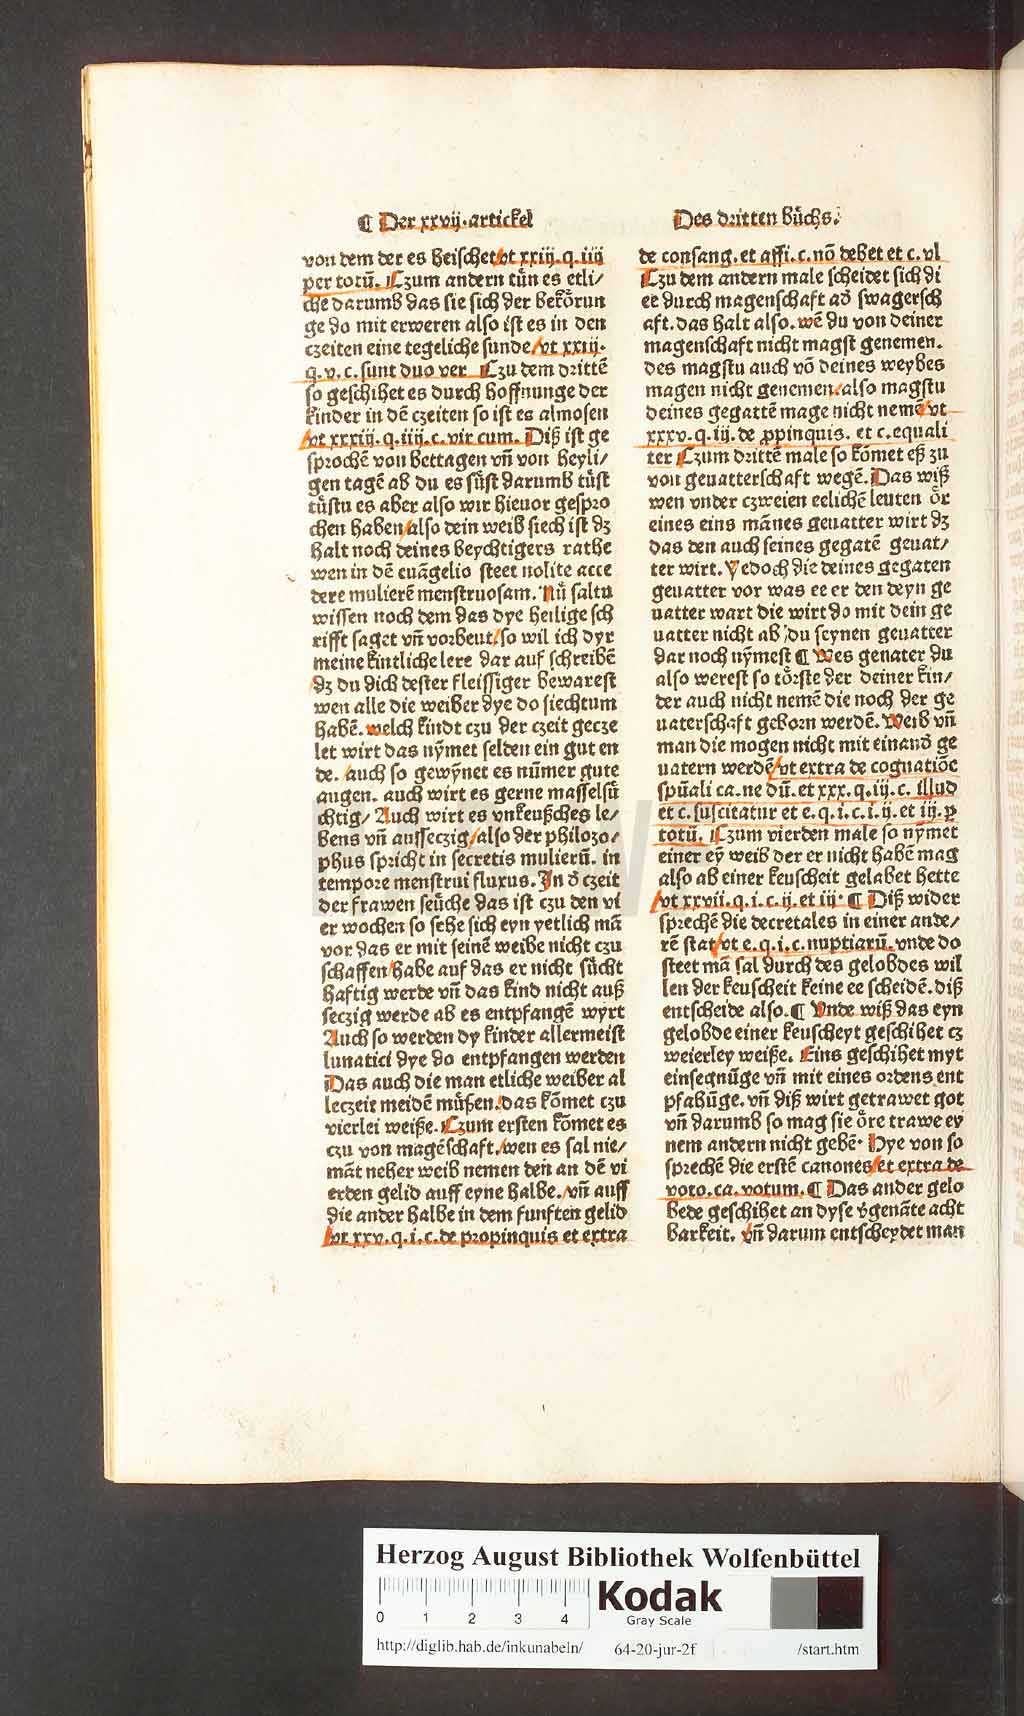 ¶ Der xxvij. artickel
von dem der es heischet/vt xxiij. q. iiij
per totū. Czum andern tůn es etli/
che darumb das sie sich der bekörun
ge do mit erweren also ist es in den
czeiten eine tegeliche sunde/vt xxij.
q. v. c. sunt duo ver Czu dem drittē
so geschihet es durch hoffnunge der
kinder in dē czeiten so ist es almosen
/vt xxxiij. q. iiij. c. vir cum. Diß ist ge
sprochē von bettagen vñ von heyli/
gen tagē ab du es sůst darumb tůst
tůstu es aber also wir hieuor gespro
chen haben/also dein weib siech ist dz
halt noch deines beychtigers rathe
wen in dē euāgelio steet nolite acce
dere mulierē menstruosam. Nů saltu
wissen noch dem das dye heilige sch
rifft saget vñ vorbeut/so wil ich dyr
meine kintliche lere dar auf schreibē
/dz du dich dester fleissiger bewarest
wen alle die weiber dye do siechtum
habē. welch kindt czu der czeit gecze
let wirt das nÿmet selden ein gut en
de. /auch so gewÿnet es nūmer gute
augen. auch wirt es gerne masselsů
chtig/ Auch wirt es vnkeußches le/
bens vñ ausseczig/also der philozo/
phus spricht in secretis mulierū. in
tempore menstrui fluxus. In d̄ czeit
der frawen seůche das ist czu den vi
er wochen so sehe sich eyn yetlich mā
vor das er mit seinē weibe nicht czu
schaffen/habe auf das er nicht sůcht
haftig werde vñ das kind nicht auß
seczig werde ab es entpfangē wyrt
Auch so werden dy kinder allermeist
lunatici dye do entpfangen werden
Das auch die man etliche weiber al
leczeit meidē můßen/das kōmet czu
vierlei weiße. Czum ersten kōmet es
czu von magēschaft/wen es sal nie/
māt neher weib nemen den an dē vi
erden gelid auff eyne halbe./vñ auff
die ander halbe in dem funften gelid
/vt xxv. q. i. c. de propinquis et extra
Des dritten bůchs.
de consang. et affi. c. nō debet et c. vl
Czu dem andern male scheidet sich di
ee durch magenschaft ad̄ swagersch
aft. das halt also. wē du von deiner
magenschaft nicht magst genemen.
des magstu auch vō deines weybes
magen nicht genemen/also magstu
deines gegattē mage nicht nemē/vt
xxxv. q. iij. de ꝓpinquis. et c. equali
ter Czum drittē male so kōmet eß zu
von geuatterschaft wegē. Das wiß
wen vnder czweien eelichē leuten őr
eines eins mānes geuatter wirt dz
das den auch seines gegatē geuat/
ter wirt. Yedoch die deines gegaten
geuatter vor was ee er den deyn ge
uatter wart die wirt do mit dein ge
uatter nicht ab du seynen geuatter
dar noch nÿmest ¶ Wes genater du
also werest so törste der deiner kin/
der auch nicht nemē die noch der ge
uaterschaft geborn werdē. Weib vñ
man die mogen nicht mit einand̄ ge
uatern werdē/vt extra de cognatiōe
spūali ca. ne dū. et xxx. q. iij. c. illud
et c. suscitatur et e. q. i. c. i. ij. et iij. ꝑ
totū. Czum vierden male so nÿmet
einer eÿ weib der er nicht habē mag
also ab einer keuscheit gelabet hette
/vt xxvii. q. i. c. ij. et iij. ¶ Diß wider
sprechē die decretales in einer ande/
rē stat/vt e. q. i. c. nuptiarū. vnde do
steet mā sal durch des gelobdes wil
len der keuscheit keine ee scheidē. diß
entscheide also. ¶ Vnde wiß das eyn
gelobde einer keuscheyt geschihet cz
weierley weiße. Eins geschihet myt
einsegnūge vñ mit eines ordens ent
pfahūge. vñ diß wirt getrawet got
vñ darumb so mag sie őre trawe ey
nem andern nicht gebē. Hye von so
sprechē die erstē canones/et extra de
voto. ca. votum. ¶ Das ander gelo
bede geschihet an dyse v̄genāte acht
barkeit. vñ darum entscheydet man
Herzog August Bibliothek Wolfenbüttel
0 1 2 3 4
Kodak
Gray Scale
http://diglib.hab.de/inkunabeln/ 64-20-jur-2f /start.htm